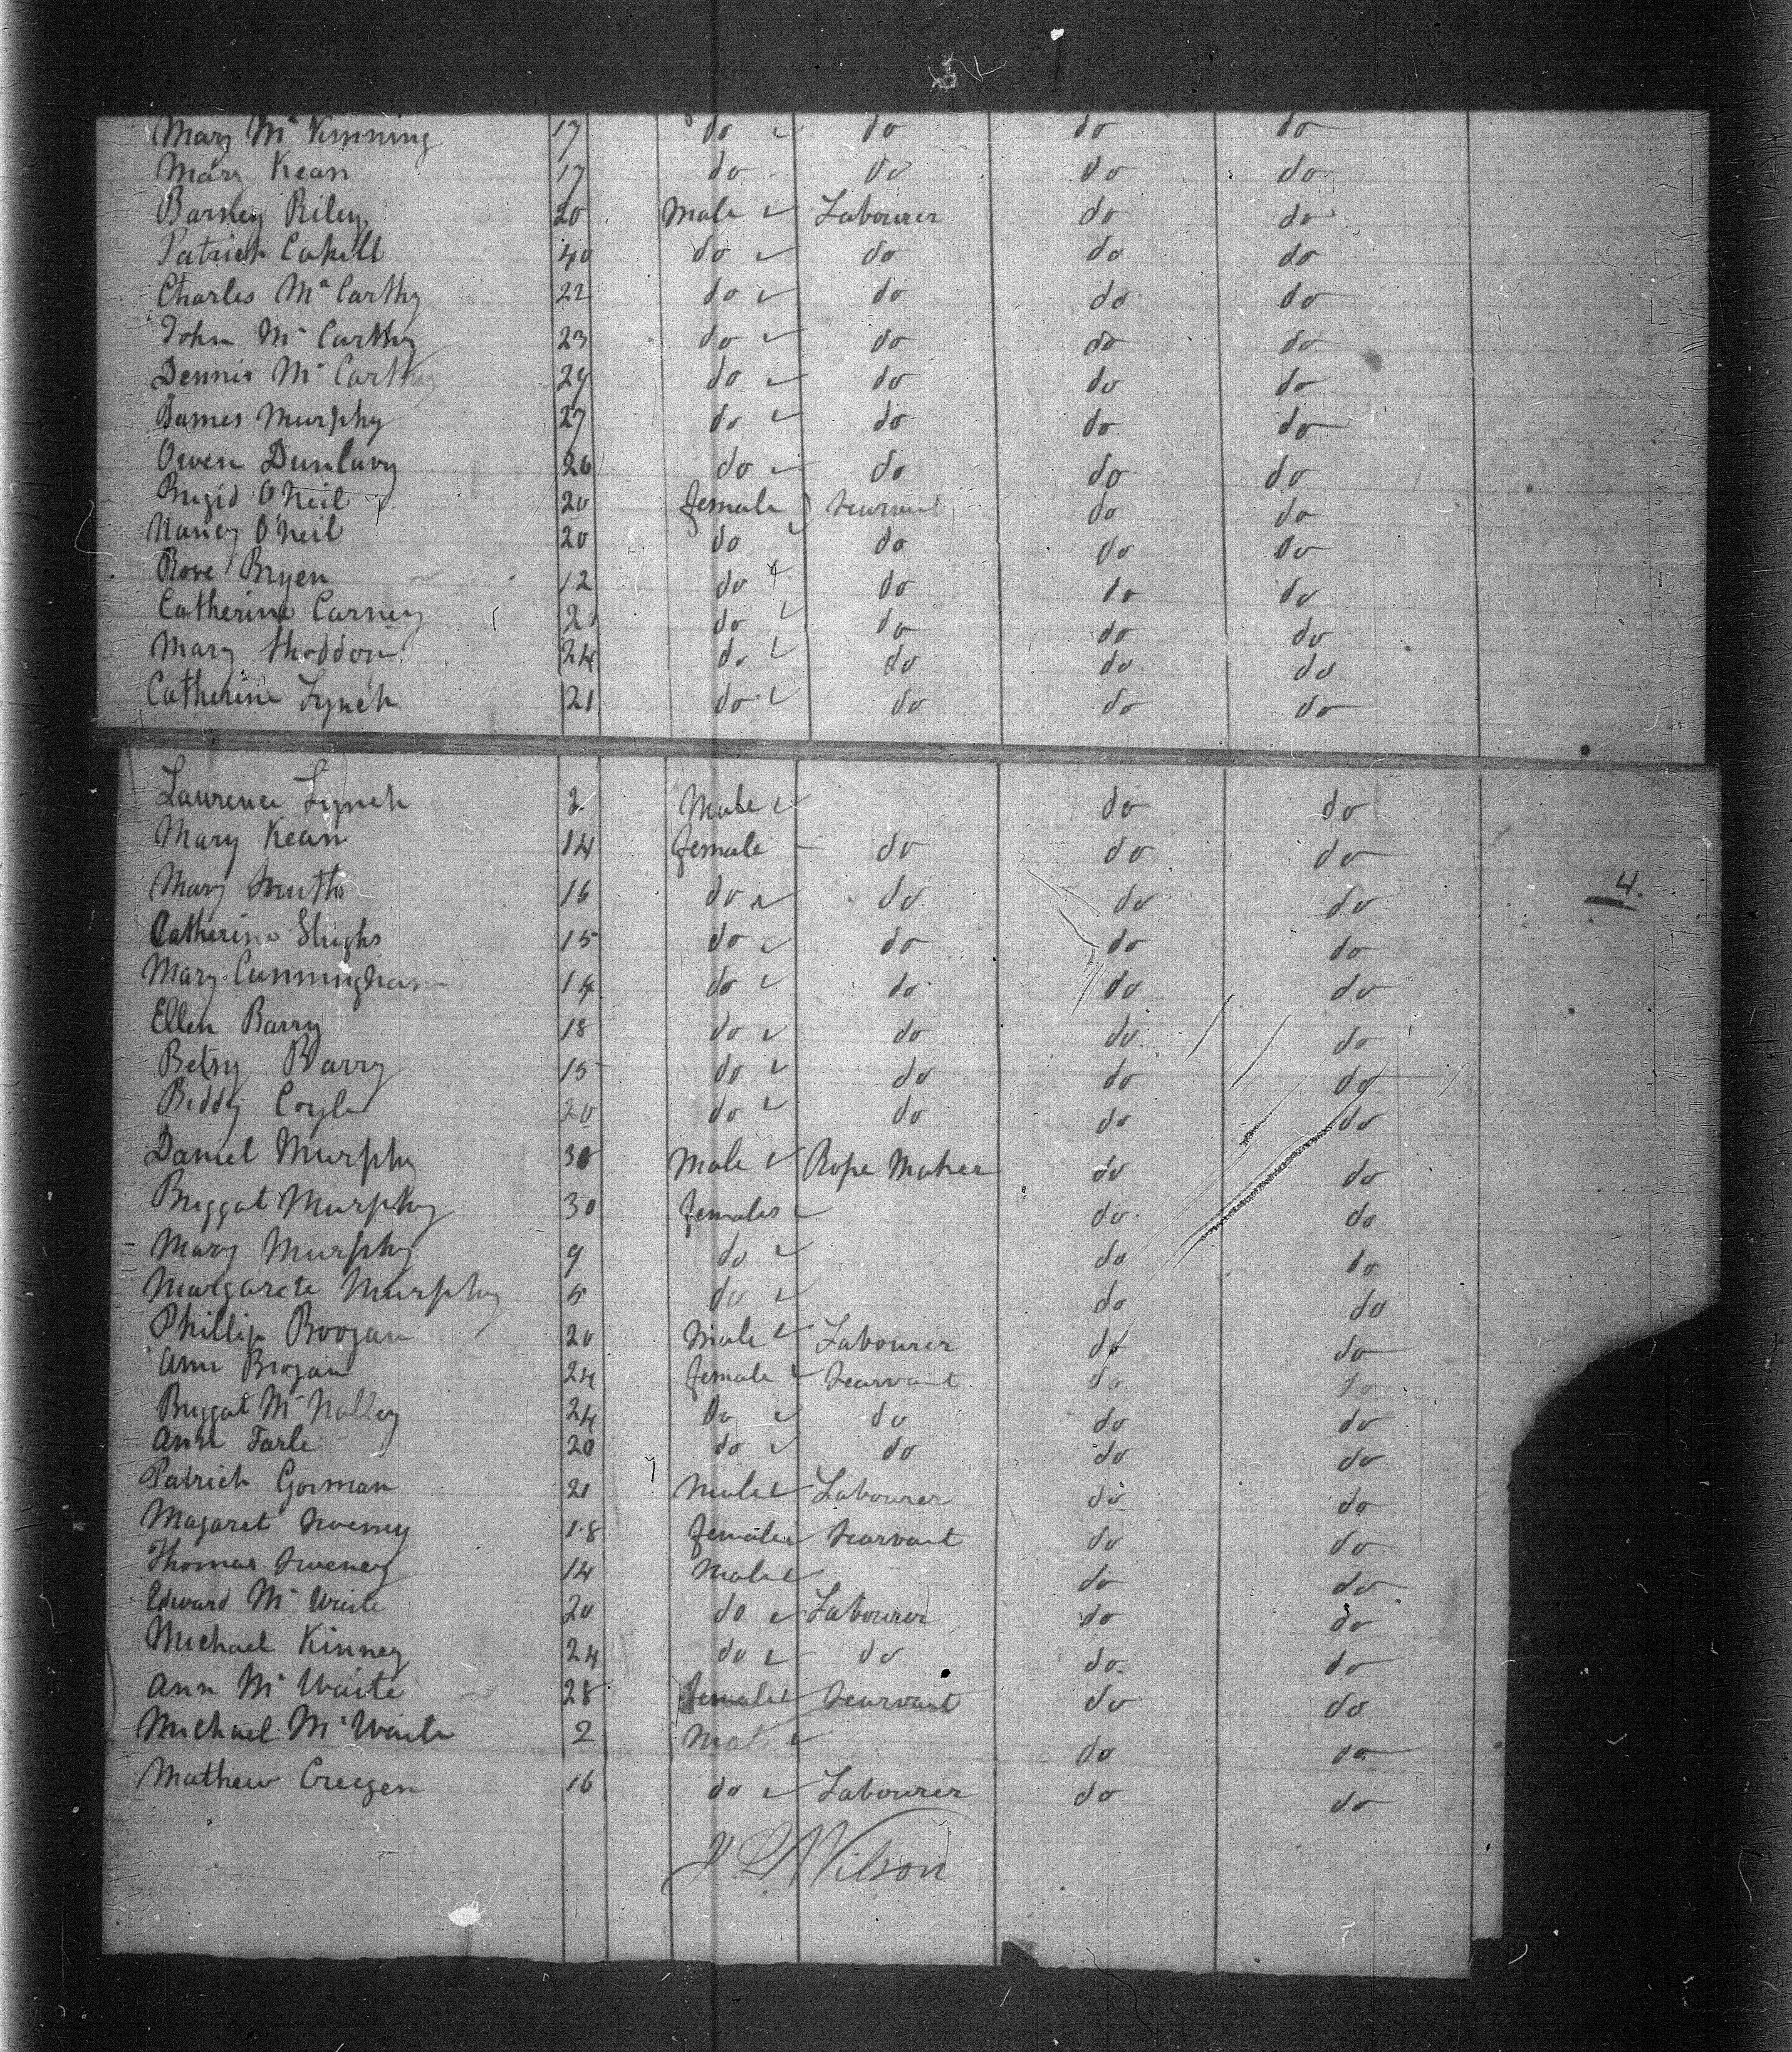 Mary Mc Kimning 17 do do do do
Mary Kean 17 do do do do
Barney Riley 20 Male Labourer do do
Patrick Cahill 40 do do do do
Charles Mc Carthy 22 do do do do
John Mc Carthy 23 do do do do
Dennis Mc Carthy 29 do do do do
James Murphy 27 do do do do
Owen Dunlavy 26 do do do do
Brigid O'Neil 20 female Searvant do do
Nancy O'Neil 20 do do do do
Rose Bryen 12 do do do do
Catherine Carney 20 do do do do
Mary 24 do do do do
Catherine Lynch 21 do do do do
Laurence Lynch 2 Male do do
Mary Kean 14 female do do do
Mary Smith 16 do do do do
Catherine 15 do do do do
Mary Cunningham 14 do do do do
Ellen Barry 18 do do do do
Betsy Barry 15 do do do do
Biddy Coyle 20 do do do do
Daniel Murphy 30 Male Rope Maker do do
Briggat Murphy 30 females do do
Mary Murphy 9 do do do
Margarete Murphy 5 do do do
Phillip Boogan 20 Male Labourer do do
Ann Brogan 24 female Searvant do do
Briggat Mc Nalley 24 do do do do
Ann Farle 20 do do do do
Patrick Gorman 21 Male Labourer do do
Magaret Sweney 18 female Searvant do do
Thomas Sweney 14 Male do do
Edward Mc Waite 20 do Labourer do do
Michael Kinney 24 do do do do
Ann Mc Waite 28 female Searvant do do
Michael Mc Waite 2 Male do do
Mathew Creegen 16 do Labourer do do
4.
J L Wilson